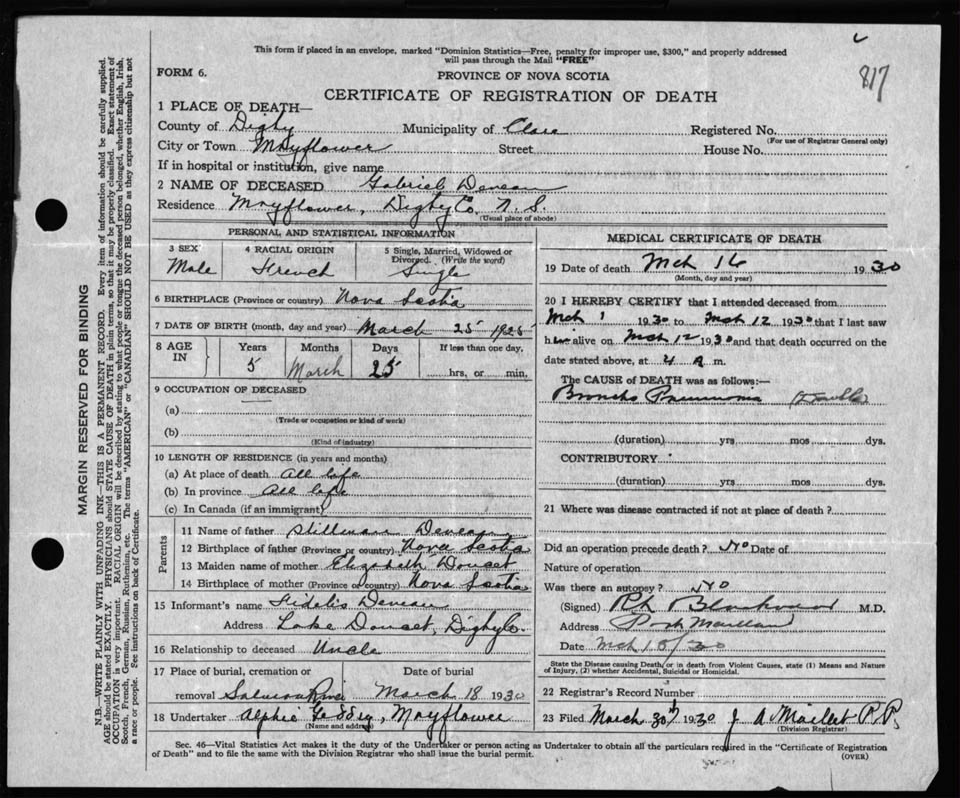 This form if placed in an envelope, marked "Dominion Statistics—Free, penalty for improper use, $300," and properly addressed
will pass through the Mail "FREE"
817
FORM 6.
PROVINCE OF NOVA SCOTIA
CERTIFICATE OF REGISTRATION OF DEATH
1 PLACE OF DEATH—
County of Digby Municipality of Clare Registered No.
(For use of Registrar General only)
City or Town Mayflower Street House No.
If in hospital or institution, give name
2 NAME OF DECEASED Gabriel Deveau
Residence Mayflower, Digby Co. N. S.
(Usual place of abode)
PERSONAL AND STATISTICAL INFORMATION
3 SEX 4 RACIAL ORIGIN 5 Single, Married, Widowed or
Divorced. (Write the word)
Male French Single
6 BIRTHPLACE (Province or country) Nova Scotia
7 DATE OF BIRTH (month, day and year) March 25 1925
8 AGE IN Years Months Days If less than one day,
5 March 25 hrs, or min.
9 OCCUPATION OF DECEASED
(a)
(Trade or occupation or kind of work)
(b)
(Kind of industry)
10 LENGTH OF RESIDENCE (in years and months)
(a) At place of death All life
(b) In province All life
(c) In Canada (if an immigrant)
Parents
11 Name of father Stillman Deveau
12 Birthplace of father (Province or country) Nova Scotia
13 Maiden name of mother Elizabeth Doucet
14 Birthplace of mother (Province or country) Nova Scotia
15 Informant's name Fidelis Deveau
Address Lake Doucet, Digby Co.
16 Relationship to deceased Uncle
17 Place of burial, cremation or Date of burial
removal Salmon River March 18 1930
18 Undertaker Alphie Geddry, Mayflower
(Name and address)
MEDICAL CERTIFICATE OF DEATH
19 Date of death Mch 16 1930
(Month, day and year)
20 I HEREBY CERTIFY that I attended deceased from
Mch 1 1930 to Mch 12 1930 that I last saw
him alive on Mch 12 1930 and that death occurred on the
date stated above, at 4 a m.
The CAUSE of DEATH was as follows:—
Broncho Pneumonia (Double)
(duration) yrs mos dys.
CONTRIBUTORY
(duration) yrs mos dys.
21 Where was disease contracted if not at place of death?
Did an operation precede death? No Date of
Nature of operation
Was there an autopsy? No
(Signed) M.D.
Address Port Maitland
Date Mch 18/30
State the Disease causing Death, or in death from Violent Causes, state (1) Means and Nature
of Injury, (2) whether Accidental, Suicidal or Homicidal.
22 Registrar's Record Number
23 Filed March 30th 1930 J. A. Maillet P.P.
(Division Registrar)
Sec. 46—Vital Statistics Act makes it the duty of the Undertaker or person acting as Undertaker to obtain all the particulars required in the "Certificate of Registration
of Death" and to file the same with the Division Registrar who shall issue the burial permit.
(OVER)
MARGIN RESERVED FOR BINDING
N.B.—WRITE PLAINLY WITH UNFADING INK—THIS IS A PERMANENT RECORD. Every item of information should be carefully supplied.
AGE should be stated EXACTLY. PHYSICIANS should STATE CAUSE OF DEATH in plain terms, so that it may be properly classified. Exact statement of
OCCUPATION is very important. RACIAL ORIGIN will be described by stating to what people or tongue the deceased person belonged, whether English, Irish,
Scotch, French, German, Russian, Ruthenian, etc. The terms "AMERICAN" or "CANADIAN" SHOULD NOT BE USED as they express citizenship but not
a race or people. See instructions on back of Certificate.